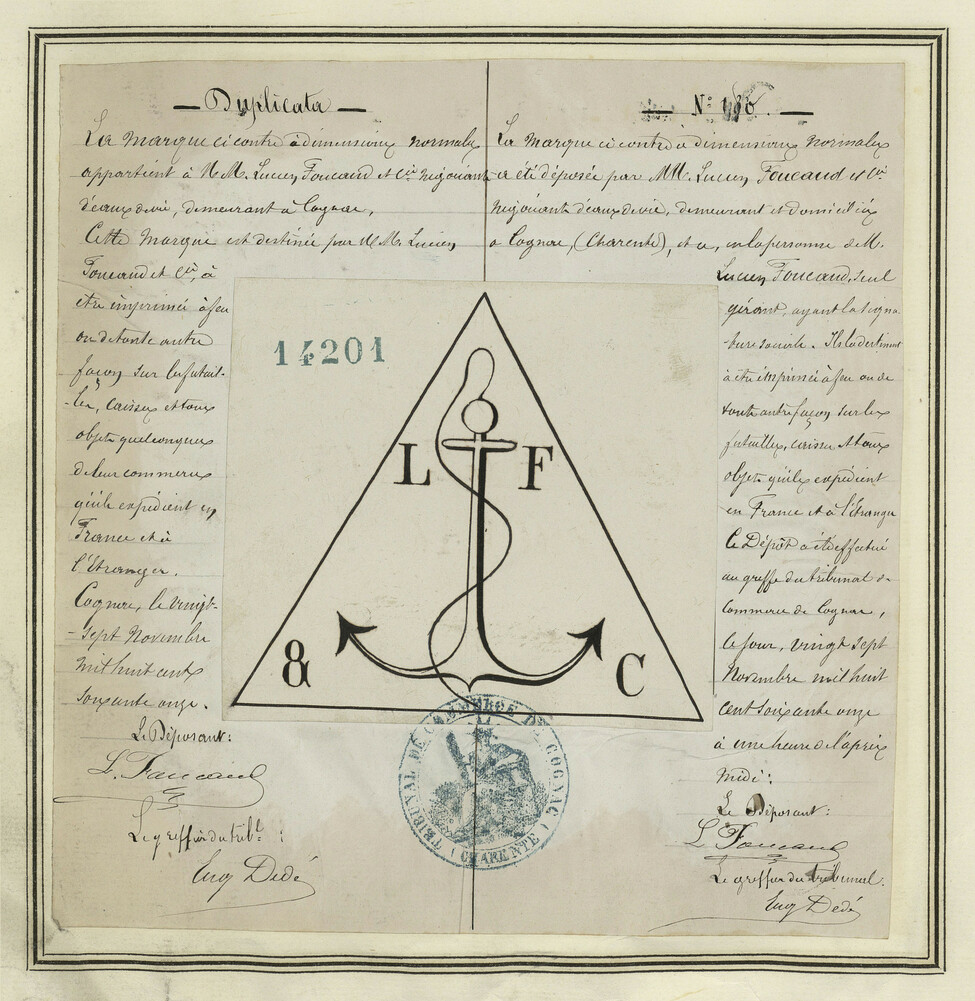 Duplicata
La marque ci contre à dimensions normales
appartient à M.M. Lucien Foucaud et Cie négociants
d'eaux de vie, demeurant à Cognac,
Cette marque est destinée par M.M. Lucien
Foucaud et Cie, à
être imprimée à feu
ou de toute autre
façon sur les futail-
-les, caisses et tous
objets quelconques
de leur commerce
qu'ils expédient en
France et à
l'Etranger.
Cognac, le vingt-
-sept Novembre
mil huit cent
soixante onze.
Le Déposant:
L. Foucaud
Le greffier du tribl:
Eug Dedé
N° 186.
La marque ci contre à dimensions normales
a été déposée par MM. Lucien Foucaud et Cie
négociants d'eaux de vie, demeurant et domiciliés
à Cognac, (Charente), et a, en la personne de M.
Lucien Foucaud, seul
gérant, ayant la signa-
ture sociale. Ils la destinent
à être imprimée à feu ou de
toute autre façon, sur les
futailles, caisses et tous
objets qu'ils expédient
en France et à l'étranger
Ce Dépôt a été effectué
au greffe du tribunal de
commerce de Cognac,
ce jour, vingt sept
Novembre mil huit
cent soixante onze
à une heure de l'après
midi:
Le Déposant:
L Foucaud
Le greffier du tribunal:
Eug Dedé
14201
L F
& C
TRIBUNAL DE COMMERCE DE COGNAC
(CHARENTE)